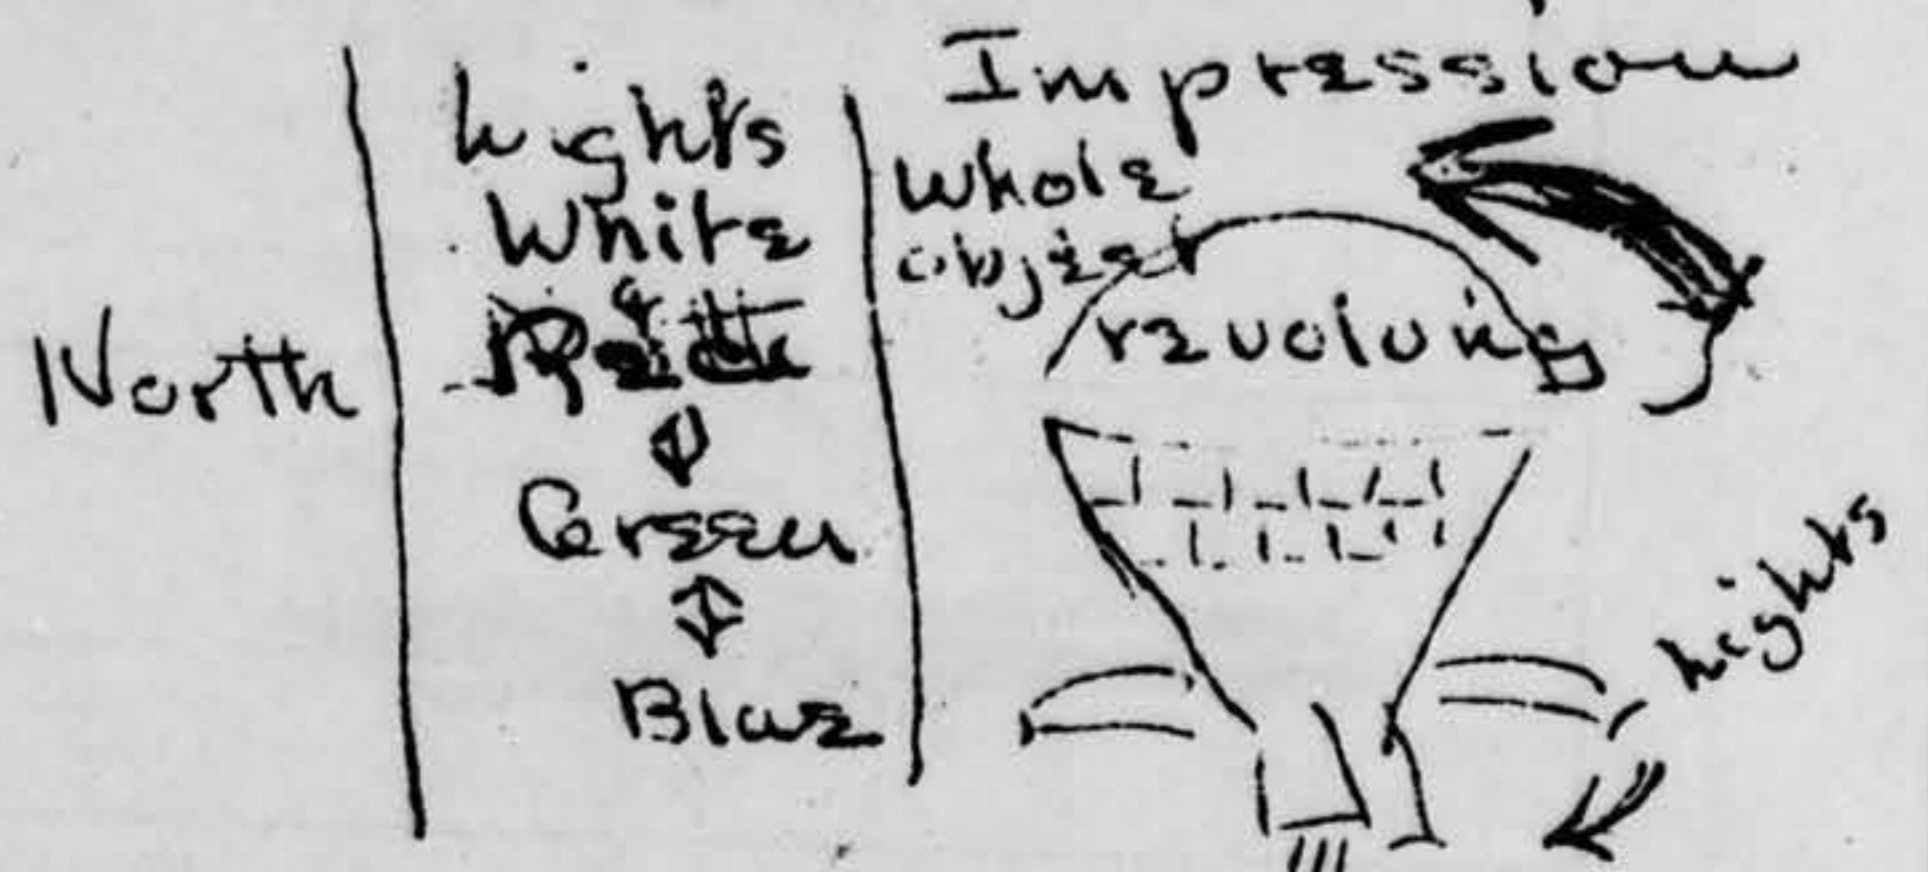 North
Lights
White
&
Green
Blue
Impression
Whole
object
revolving
Lights